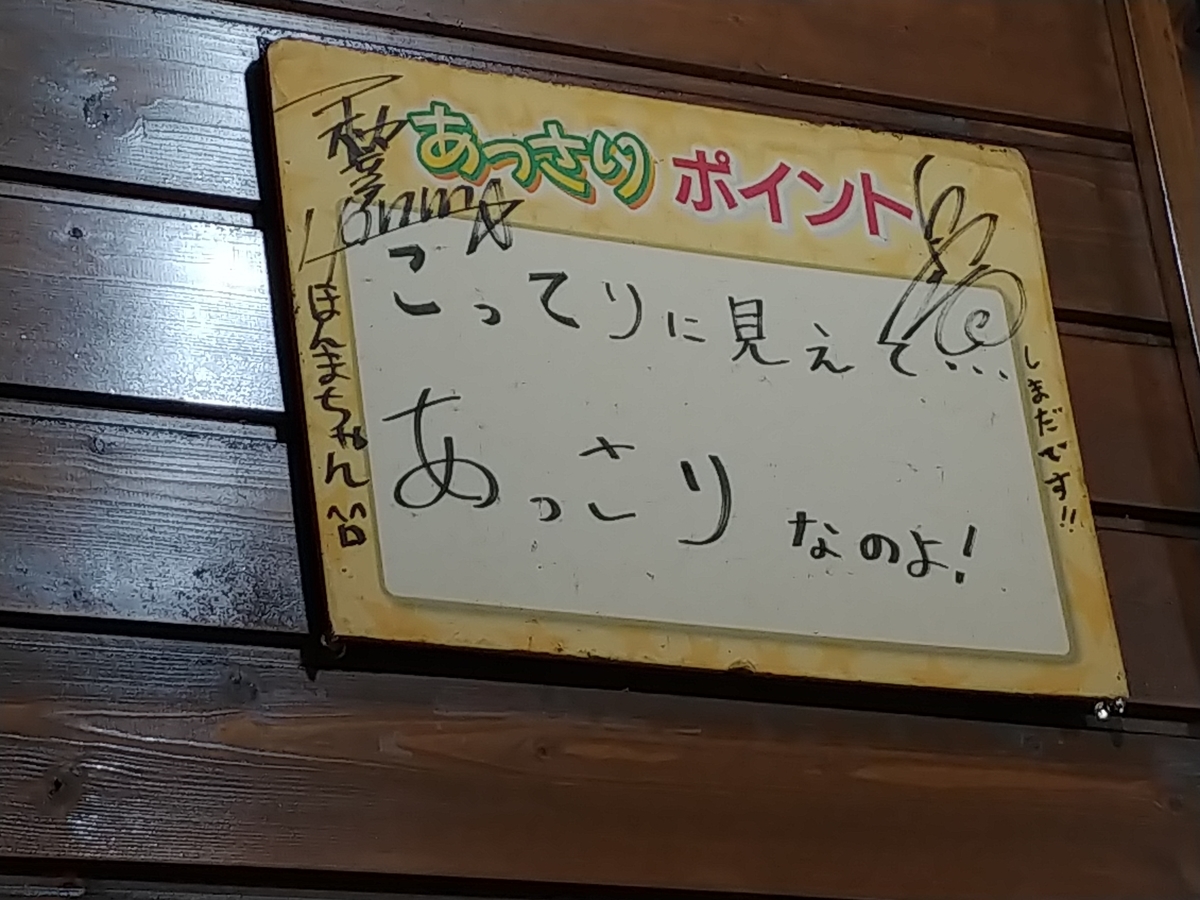 あっさりポイント
こってりに見えて...
あっさりなのよ!
Honma
ほんまちゃん
しまだです!!